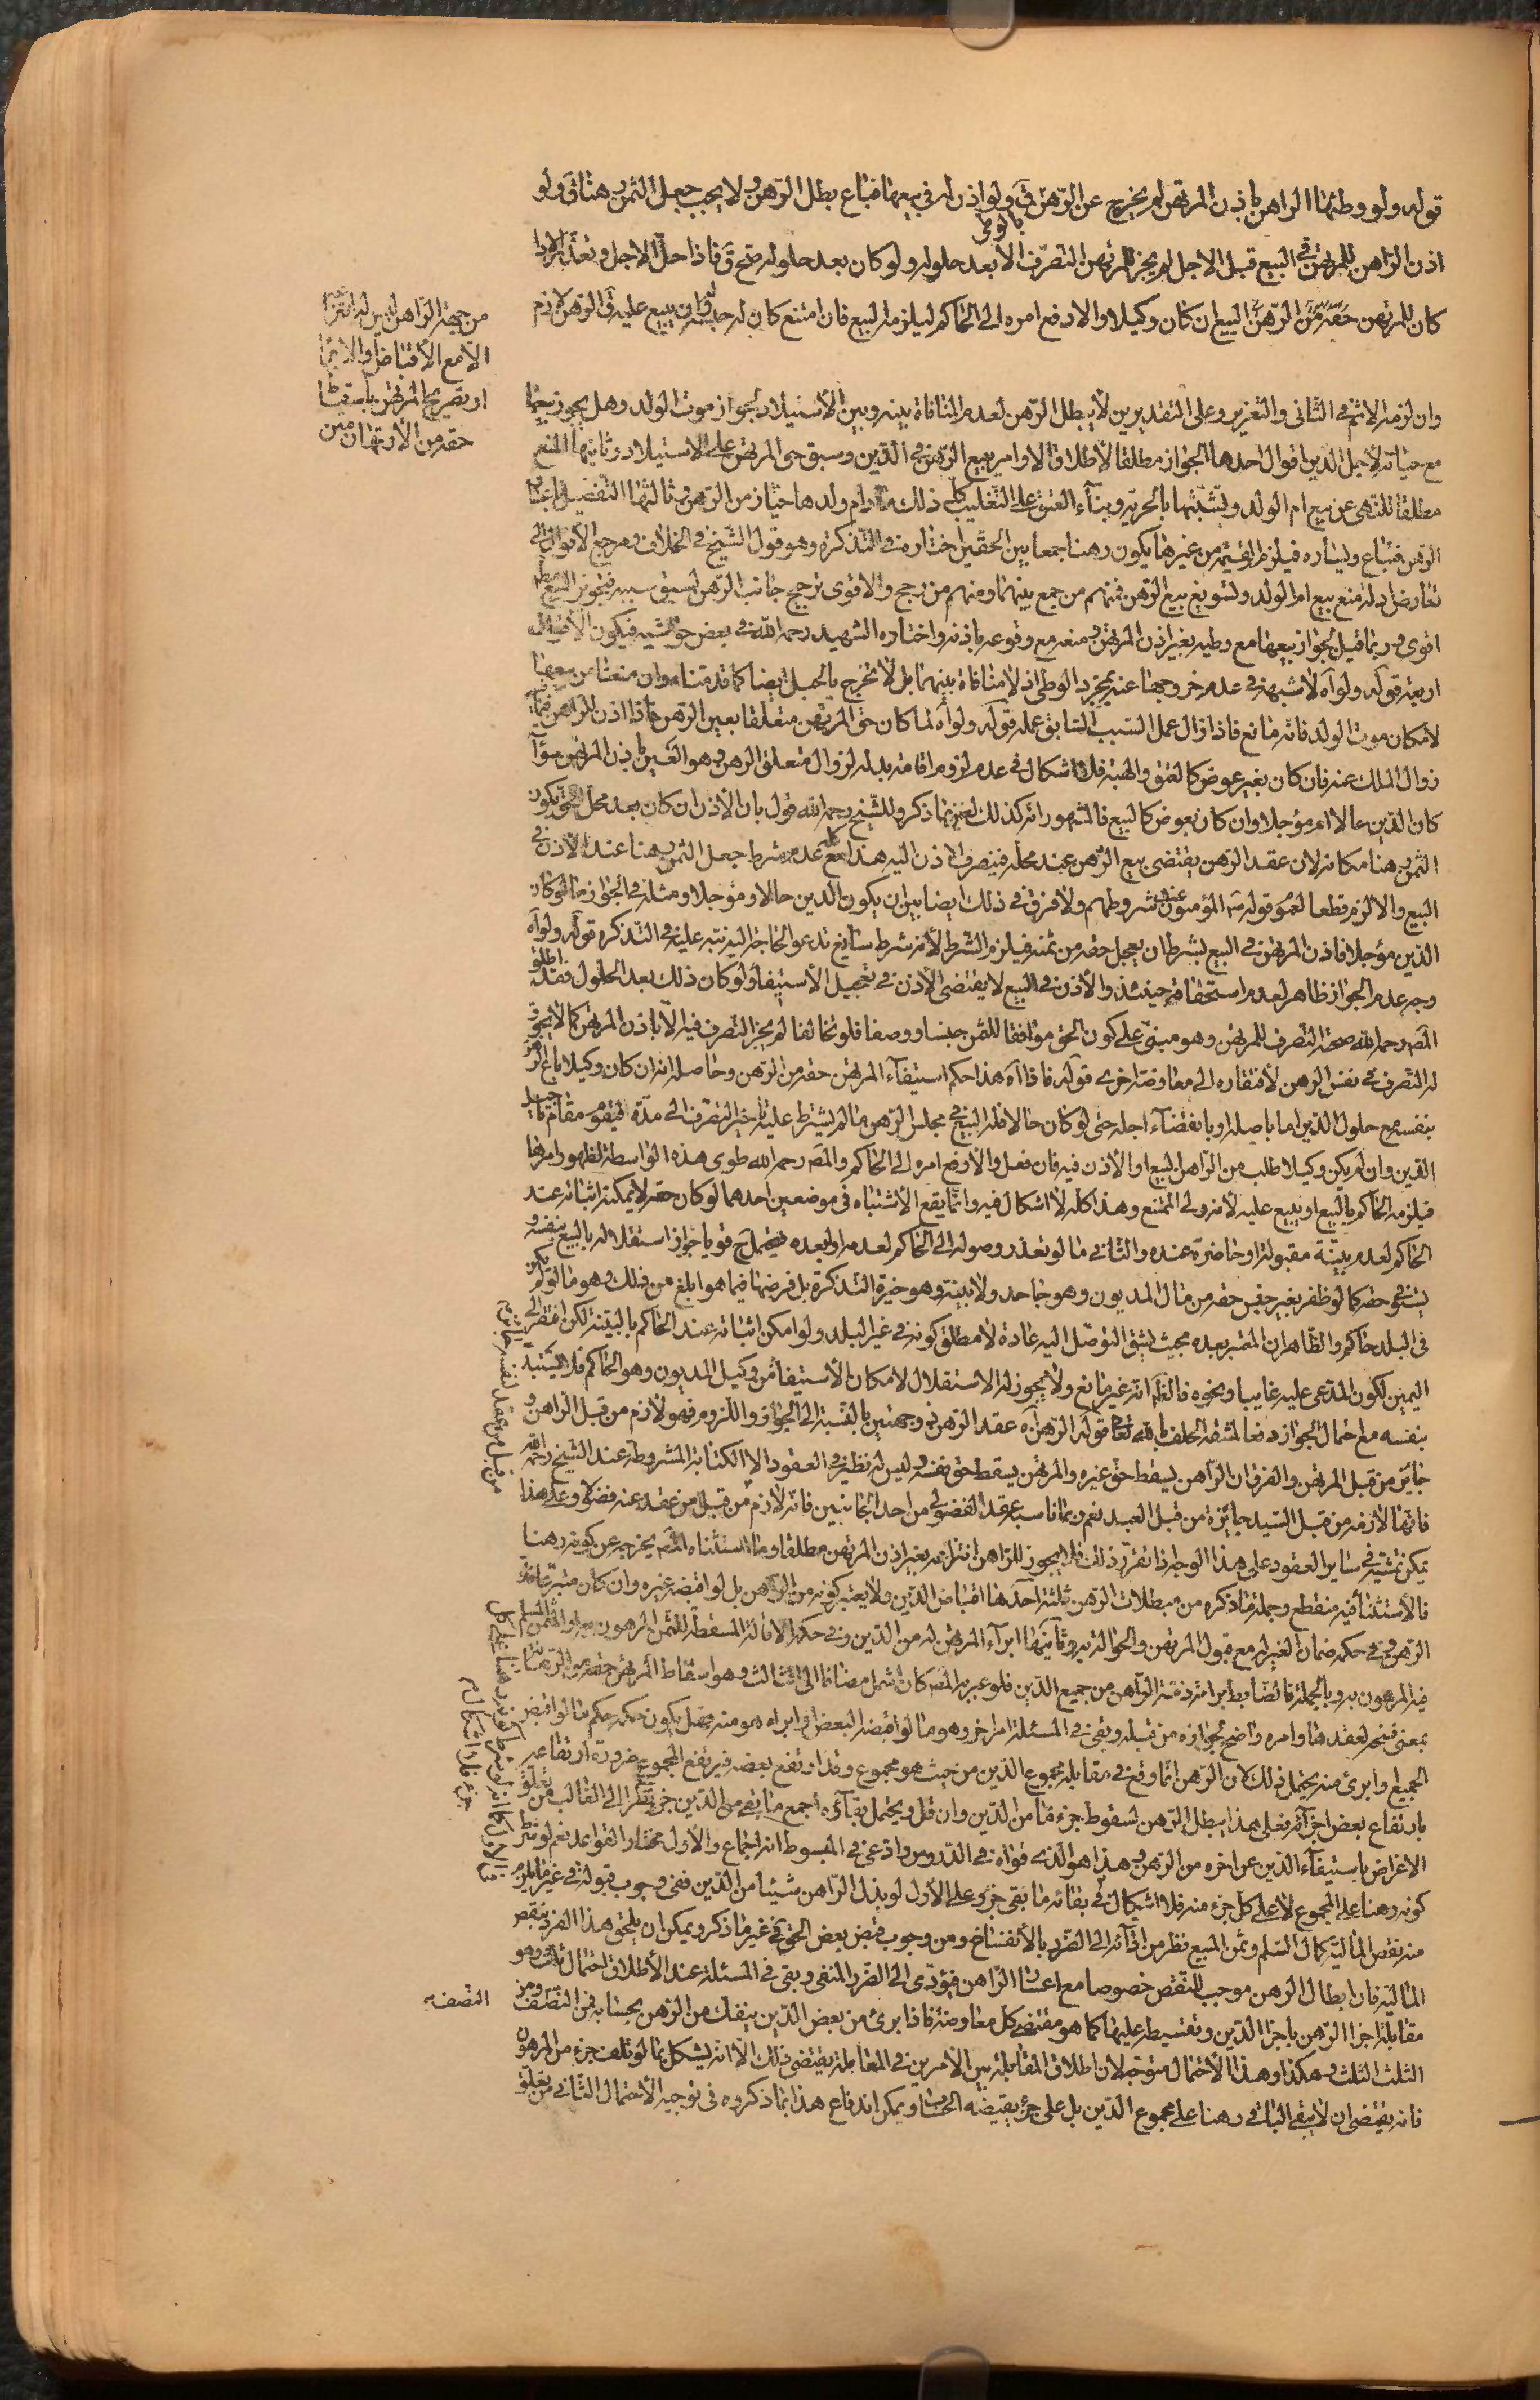 قوله ولو وطئها الراهن باذن المرتهن لم يخرج عن الرهن ق ولو اذن له في بيعها فباع بطل الرهن ولا يجب جعل الثمن رهنا ق ولو
اذن الراهن للمرتهن في البيع قبل الاجل لم يجز للمرتهن التصرف الا بعد حلوله ولو كان بعد حلوله صح ق فاذا حل الاجل وتعذر الاداء
كان للمرتهن البيع ان كان وكيلا والا رفع امره الى الحاكم ليلزمه البيع فان امتنع كان له حبسه وان يبيع عليه ق الرهن لازم
من جهة الراهن ليس له انتزاعه
الا مع الأقباض او الابراء
او تصريح المرتهن باسقاط
حقه من الأرتهان
وان لزمه الاثم في الثاني والتعزير وعلى التقديرين لا يبطل الرهن لعدم المنافاة بينه وبين الأستيلاد لجواز موت الولد وهل يجوز بيعها
مع حياته لأجل الدين اقوال احدها الجواز مطلقا لأطلاق الاوامر ببيع الرهن في الدين وسبق حق المرتهن على الاستيلاد وثانيها المنع
مطلقا للنهي عن بيع ام الولد وتشبثها بالحرية وبناء العتق على التغليب كل ذلك مادام ولدها حيا من الرهن وثالثها التفصيل باعسار
الراهن فتباع ويساره فيلزم القيمة من غيرها يكون رهنا جمعا بين الحقين اختاره في التذكرة وهو قول الشيخ في الخلاف ومرجع الأقوال الى
تعارض ادلة منع بيع ام الولد وتسويغ بيع الرهن فمنهم من جمع بينهما ومنهم من رجح والاقوى ترجيح جانب الرهن لسبق سببه فيجوز البيع مطلقا
اقوى وربما قيل بجواز بيعها مع وطيه بغير اذن المرتهن ومنعه مع وقوعه باذنه واختاره الشهيد رحمه الله في بعض حواشيه فيكون الأقوال
اربعة قوله ولو آه لا شبهة في عدم خروجها عنه بمجرد الوطي اذ لا منافاة بينهما بل لا تخرج بالحبل ايضا كما قدمناه وان منعنا من بيعها
لامكان موت الولد فانه مانع فاذا زال عمل السبب السابق عمله قوله ولو آه لما كان حق المرتهن متعلقا بعين الرهن فاذا اذن للراهن فيما
زوال الملك عنه فان كان بغير عوض كالعتق والهبة فلا اشكال في عدم لزوم اقامة بدله لزوال متعلق الرهن وهو العين باذن المرتهن سواء
كان الدين حالا ام مؤجلا وان كان بعوض كالبيع فالمشهور انه كذلك لعين ما ذكر وللشيخ رحمه الله قول بان الأذن ان كان بعد محل الحق يكون
الثمن رهنا مكانه لان عقد الرهن يقتضي بيع الرهن عند محله فينصرف الاذن اليه هذا كله مع عدم شرط جعل الثمن رهنا عند الاذن في
البيع والا لزم قطعا لعموم قوله ص المؤمنون عند شروطهم ولا فرق في ذلك ايضا بين ان يكون الدين حالا ومؤجلا ومثله في الجواز ما لو كان
الدين مؤجلا فاذن المرتهن في البيع بشرط ان يعجل حقه من ثمنه فيلزم الشرط لأنه شرط سائغ تدعو الحاجة اليه نبه عليه في التذكرة قوله ولو آه
وجه عدم الجواز ظاهر لعدم استحقاقه حينئذ والأذن في البيع لا يقتضي الاذن في تعجيل الأستيفاء ولو كان ذلك بعد الحلول فقد اطلق
المص رحمه الله صحة التصرف للمرتهن وهو مبني على كون الحق موافقا للثمن جنسا ووصفا فلو تخالفا لم يجز التصرف فيه الا باذن المرتهن كما لا يجوز
له التصرف في نفس الرهن لأفتقاره الى معاوضة اخرى قوله فاذا آه هذا حكم استيفاء المرتهن حقه من الرهن وحاصله انه ان كان وكيلا باع الرهن
بنفسه مع حلول الدين اما باصله او بانقضاء اجله حتى لو كان حالا فله البيع في مجلس الرهن ما لم يشترط عليه تاخير التصرف الى مدة فيقوم مقام تاجيل
الدين وان لم يكن وكيلا طلب من الراهن البيع او الأذن فيه فان فعل والا رفع امره الى الحاكم والمص رحمه الله طوى هذه الواسطة لظهور امرها
فيلزمه الحاكم بالبيع او يبيع عليه لأنه ولي الممتنع وهذا كله لا اشكال فيه وانما يقع الأشتباه في موضعين احدهما لو كان حقه لا يمكنه اثباته عند
الحاكم لعدم بينة مقبولة او حاضرة عنده والثاني ما لو تعذر وصوله الى الحاكم لعدمه او لبعده فيحتمل ح قويا جواز استقلاله بالبيع بنفسه و
يستوفي حقه كما لو ظفر بغير جنس حقه من مال المديون وهو جاحد ولا بينة وهو خيرة التذكرة بل فرضها فيما هو ابلغ من ذلك وهو ما لو لم يكن
في البلد حاكم والظاهر ان المعتبر بعده بحيث يشق التوصل اليه عادة لا مطلق كونه في غير البلد ولو امكن اثباته عند الحاكم بالبينة لكن افتقر الى
اليمين لكون المدعى عليه غايبا ونحوه فالظ انه غير مانع ولا يجوز له الاستقلال لامكان الأستيفاء من وكيل المديون وهو الحاكم فلا يستبد
بنفسه مع احتمال الجواز دفعا لمشقة الحلف بالله تعالى قوله الرهن آه عقد الرهن ذو وجهتين بالنسبة الى الجواز واللزوم فهو لازم من قبل الراهن و
جائز من قبل المرتهن والفرق ان الراهن يسقط حق غيره والمرتهن يسقط حق نفسه وليس له نظير في العقود الا الكتابة المشروطة عند الشيخ رحمه الله
فانها لازمة من قبل السيد جائزة من قبل العبد نعم ربما ناسب عقد الفضولي من احد الجانبين فانه لازم من قبل من عقد عنه فضولي وعلى هذا
يمكن تمشيته في ساير العقود على هذا الوجه اذا تقرر ذلك فلا يجوز للراهن انتزاعه بغير اذن المرتهن مطلقا وما استثناه المص يخرجه عن كونه رهنا
فالأستثناء فيه منقطع وجملة ما ذكره من مبطلات الرهن ثلثة احدها اقباض الدين ولا يعتبر كونه من الراهن بل لو اقبضه غيره وان كان متبرعا فك
الرهن وفي حكمه ضمان الغير له مع قبول المرتهن والحوالة به وثانيها ابراء المرتهن له من الدين وفي حكمه الاقالة المسقطة للثمن المرهون به او الثمن المسلم
فيه المرهون به وبالجملة فالضابط براءة ذمة الراهن من جميع الدين فلو عبر به المص كان اشمل مضافا الى الثالث وهو اسقاط المرتهن حقه من الرهانة
بمعنى فسخه لعقدها وامره واضح لجوازه من قبله وبقي في المسئلة امر اخر وهو ما لو اقبضه البعض او ابراه هو منه فهل يكون حكمه حكم ما لو اقبض
الجميع او ابرئ منه يحتمل ذلك لان الرهن انما وقع في مقابلة مجموع الدين من حيث هو مجموع وقد ارتفع بعضه فيرتفع المجموع ضرورة ارتفاعه
بارتفاع بعض اجزائه فعلى هذا يبطل الرهن لسقوط جزء ما من الدين وان قل ويحتمل بقاؤه اجمع ما بقي من الدين جزء نظرا الى الغالب من تعلق
الاغراض باستيفاء الدين عن اخره من الرهن وهذا هو الذي قواه في الدروس وادعى في المبسوط انه اجماع والأول مختار القواعد نعم لو شرط
كونه رهنا على المجموع لا على كل جزء منه فلا اشكال في بقائه ما بقي جزء وعلى الأول لو بذل الراهن شيئا من الدين ففي وجوب قبوله في غير ما يلزم
منه نقص المالية كمال السلم وثمن المبيع نظر من ادائه الى الضرر بالأنفساخ ومن وجوب قبض بعض الحق في غير ما ذكر ويمكن ان يلحق هذا الفرد بنقص
المالية فان ابطال الرهن موجب للنقص خصوصا مع اعسار الراهن فيؤدي الى الضرر المنفي وبقي في المسئلة عند الأطلاق احتمال ثالث وهو
مقابلة اجزاء الرهن باجزاء الدين وتقسيطه عليها كما هو مقتضى كل معاوضة فاذا برئ من بعض الدين ينفك من الرهن بحسابه فمن النصف النصف ومن
الثلث الثلث وهكذا وهذا الأحتمال متوجه لان اطلاق المقابلة بين الأمرين في المقابلة يقتضي ذلك الا انه يشكل بما لو تلف جزء من المرهون
فانه يقتضي ان لا يبقى الباقي رهنا على مجموع الدين بل على جزء يقتضيه الحساب ويمكن اندفاع هذا بما ذكروه في توجيه الأحتمال الثاني من تعلق